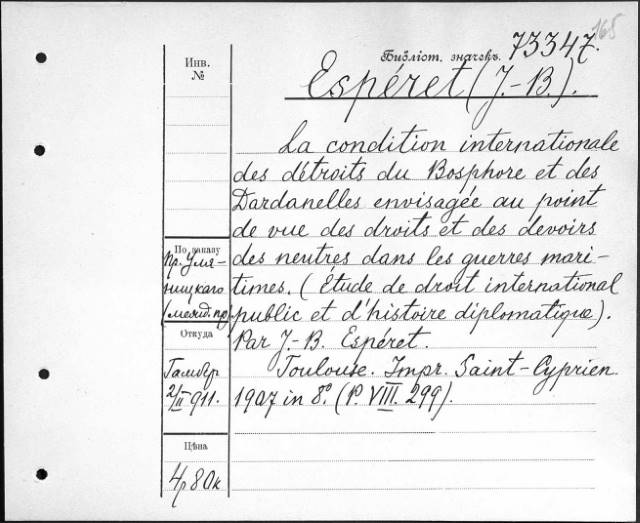 165
Бібліот. значекъ. 73347.
Инв.
№
Espéret (J.-B.).
La condition internationale
des détroits du Bosphore et des
Dardanelles envisagée au point
de vue des droits et des devoirs
des neutres dans les guerres mari-
times. (Étude de droit international
public et d'histoire diplomatique).
Par J.-B. Espéret.
Toulouse. Impr. Saint-Cyprien.
1907 in 8°. (P. VIII. 299).
По заказу
Пр. Уля-
ницкаго
(межд. пр)
Откуда
Гамбург
2/II 911.
Цѣна
4р 80к